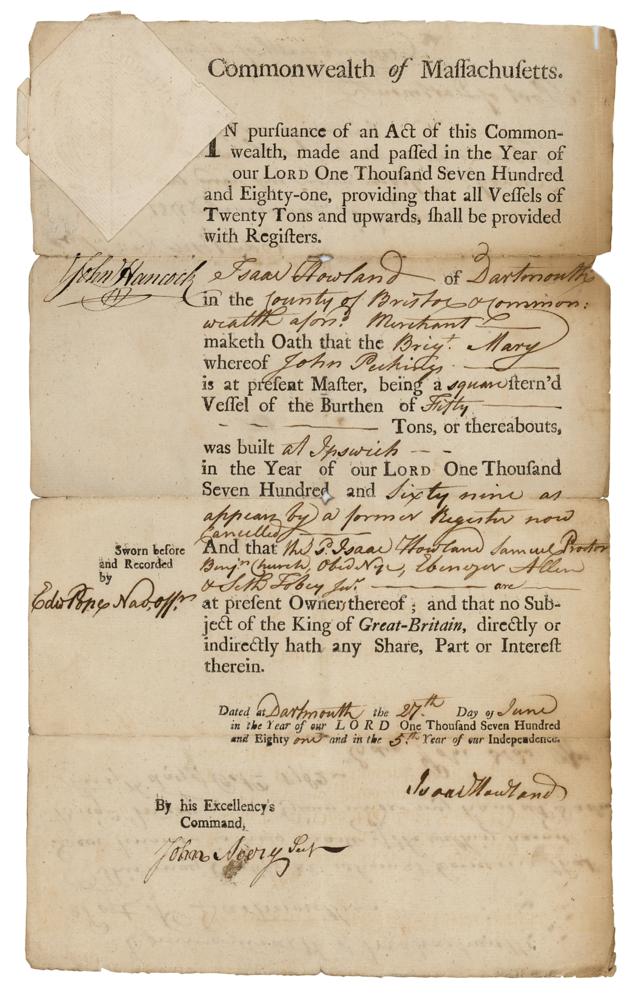 Commonwealth of Maſſachuſetts.
IN purſuance of an Act of this Common-
wealth, made and paſſed in the Year of
our LORD One Thouſand Seven Hundred
and Eighty-one, providing that all Veſſels of
Twenty Tons and upwards, ſhall be provided
with Regiſters.
John Hancock
Isaac Howland of Dartmouth
in the County of Bristol & Common:
wealth afors.d Merchant
maketh Oath that the Brig.t Mary
whereof John
is at preſent Maſter, being a square ſtern'd
Veſſel of the Burthen of Fifty
Tons, or thereabouts,
was built at Ipswich
in the Year of our LORD One Thouſand
Seven Hundred and Sixty nine as
appears by a former Register now
Cancelled
And that the s.d Isaac Howland Samuel Proctor
Benj.n Church, Obed Nye, Ebenezer Allen
& Seth Tobey Jur. are
at preſent Owner thereof; and that no Sub-
ject of the King of Great-Britain, directly or
indirectly hath any Share, Part or Intereſt
therein.
Sworn before
and Recorded
by
Edw Pope Nav. off.r
Dated at Dartmouth the 27.th Day of June
in the Year of our LORD One Thouſand Seven Hundred
and Eighty one and in the 5.th Year of our Independence.
Isaac Howland
By his Excellency's
Command,
John Avery Sec.y